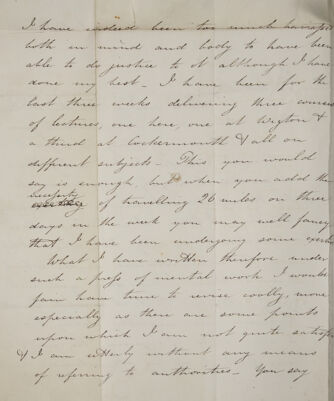 I have indeed been too much harassed
both in mind and body to have been
able to do justice to it although I have
done my best – I have been for the
last three weeks delivering three courses
of lectures, one here, one at Wigton &
a third at Cockermouth & all on
different subjects – This you would
say is enough, but when you add the
necessity
of travelling 26 miles on three
days in the week you may well fancy
that I have been undergoing some
What I have written therefore under
such a press of mental work I would
fain have time to revise coolly, more
especially as there are some points
upon which I am not quite satisfi
& I am utterly without any means
of referring to authorities – You say